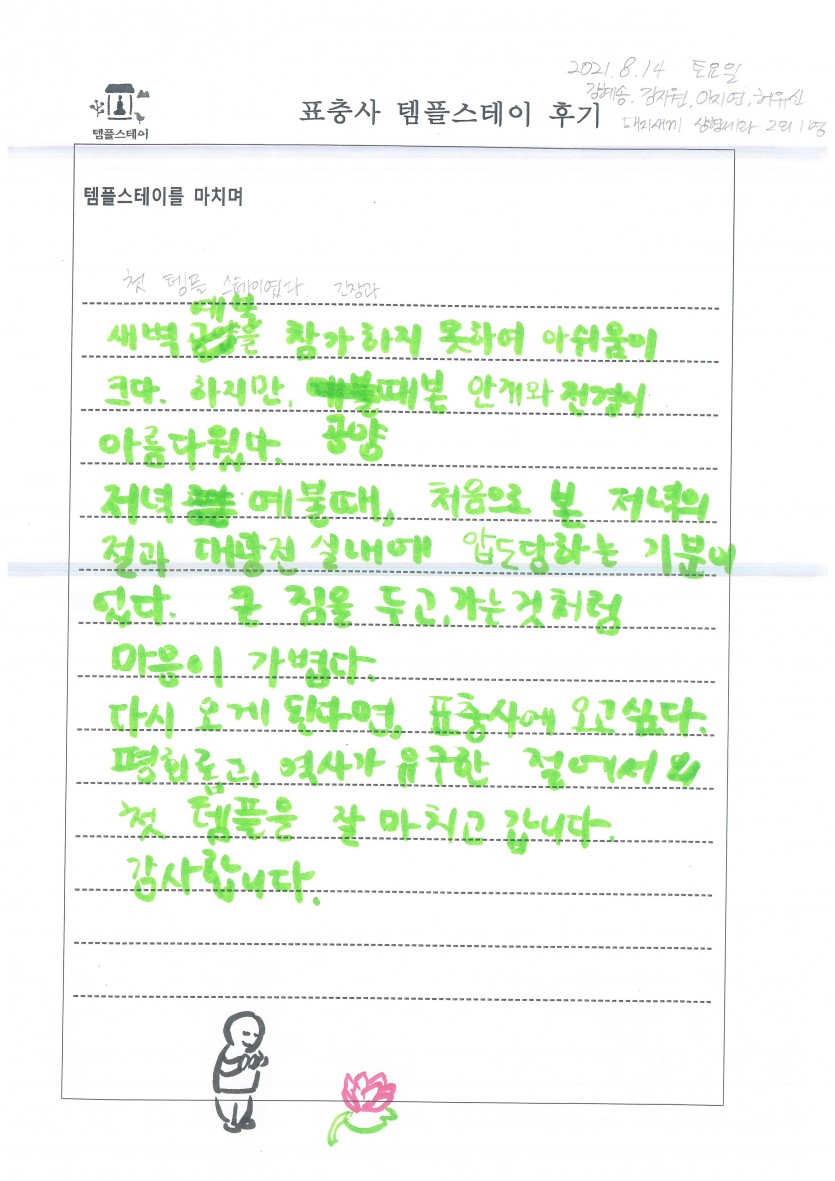 2021.8.14 토요일
김혜송, 김자원, 이지연, 하유신
템플스테이
표충사 템플스테이 후기
돼지새끼
템플스테이를 마치며
첫 템플 스테이였다. 긴장과
예불
새벽 을 참가하지 못하여 아쉬움이
크다. 하지만, 때본 안개와 전경이
공양
아름다웠다.
저녁 예불때, 처음으로 본 저녁의
절과 대광전 실내에 압도당하는 기분이
었다. 큰 짐을 두고,가는것처럼
마음이 가볍다.
다시 오게 된다면, 표충사에 오고싶다.
평화롭고, 역사가 유구한 절에서의
첫 템플을 잘 마치고 갑니다.
감사합니다.